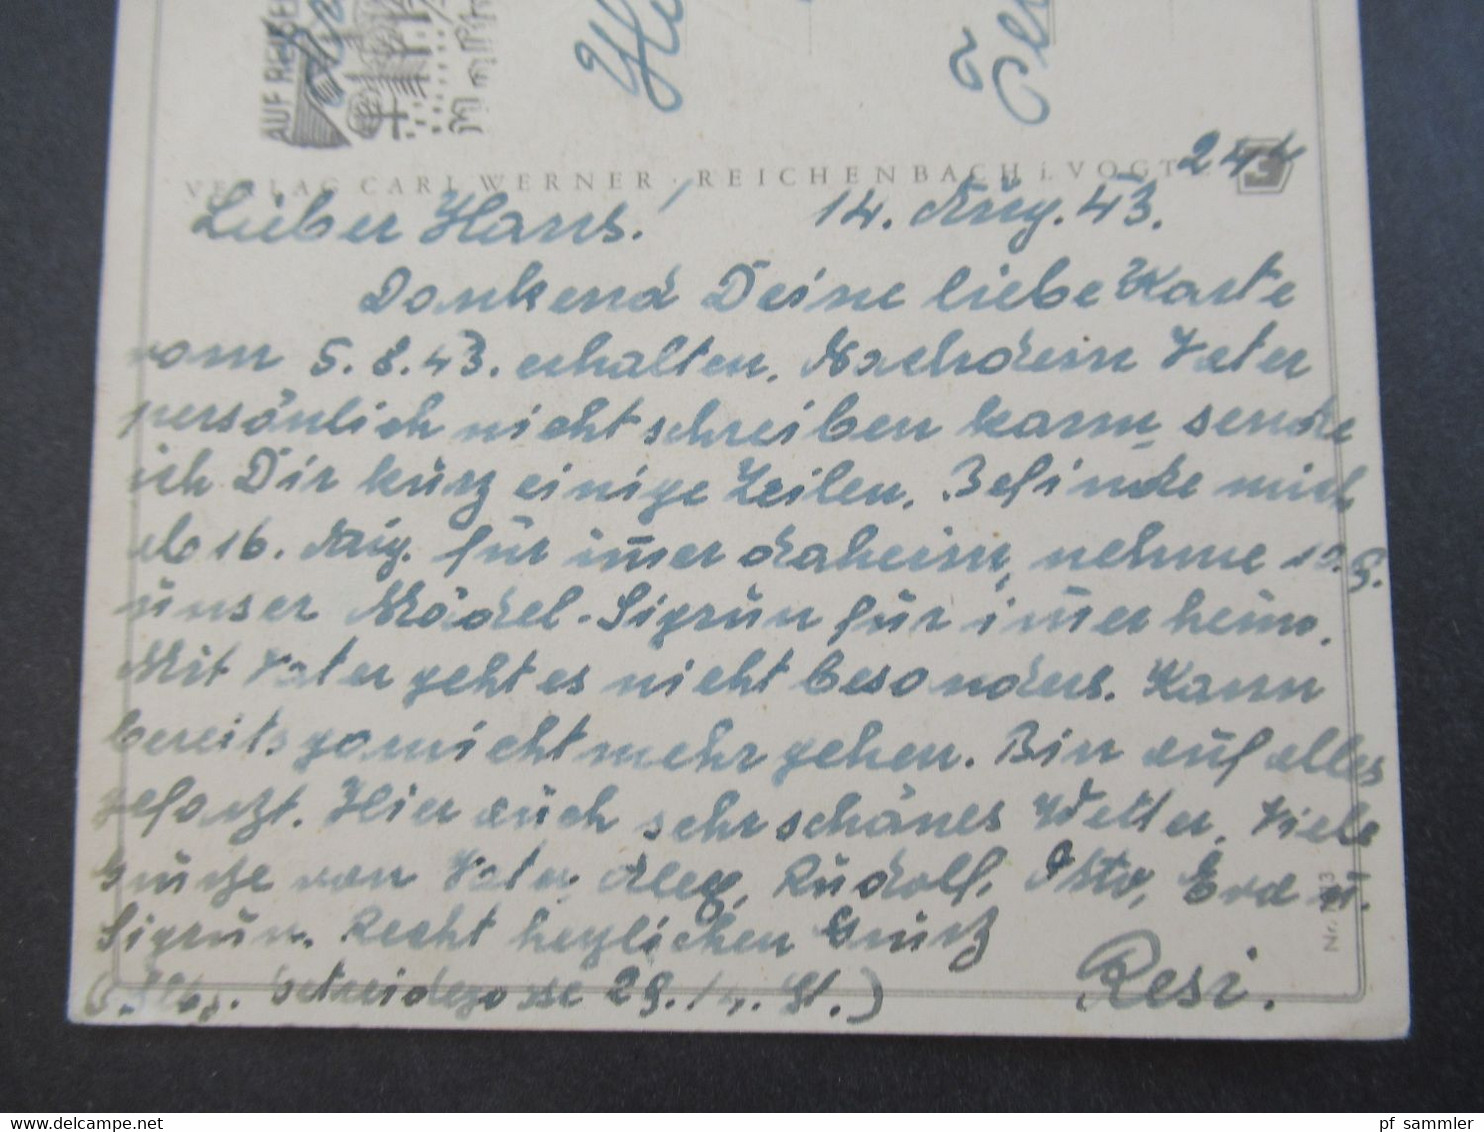 AUF REISEN
VERLAG CARL WERNER · REICHENBACH i. VOGTL.
24
3
Lieber Hans! 14. Aug. 43.
Dankend Deine liebe Karte
vom 5.8.43. erhalten. Nachdem Vater
persönlich nicht schreiben kann, sende
ich Dir kurz einige Zeilen. Befinde mich
ab 16. Aug. für im̅er daheim, nehme 10.9.
unser Mädel-Sigrun für im̅er heim.
Mit Vater geht es nicht besonders. Kann
bereits garnicht mehr gehen. Bin auf alles
gefaszt. Hier auch sehr schönes Wetter. Viele
Grüße von Vater, Rudolf, Eva u.
Sigrun. Recht herzlichen Grusz
Getreidegasse 29. Resi.
Nr.
pf sammler
www.delcampe.net